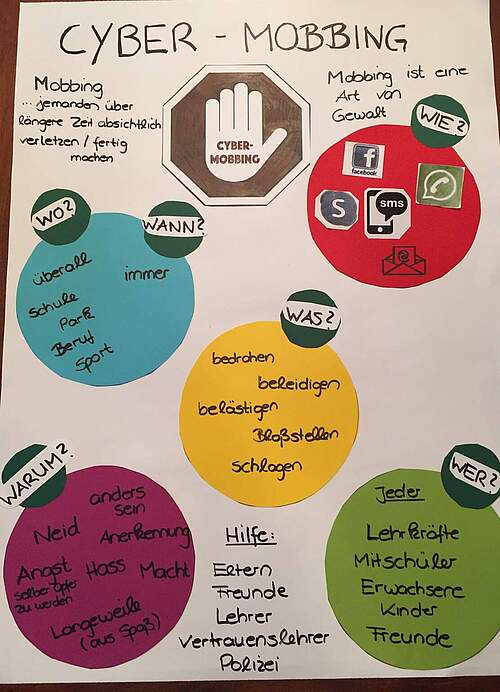 CYBER - MOBBING
Mobbing
... jemanden über
längere Zeit absichtlich
verletzen / fertig
machen
CYBER-
MOBBING
Mobbing ist eine
Art von
Gewalt
WIE?
facebook
S
sms
e
WO?
WANN?
überall
immer
Schule
Park
Beruf
Sport
WAS?
bedrohen
beleidigen
belästigen
Bloßstellen
schlagen
WARUM?
anders
sein
Neid
Anerkennung
Angst
selber Opfer
zu werden
Hass
Macht
Langeweile
(aus Spaß)
Hilfe:
Eltern
Freunde
Lehrer
Vertrauenslehrer
Polizei
WER?
Jeder
Lehrkräfte
Mitschüler
Erwachsene
Kinder
Freunde